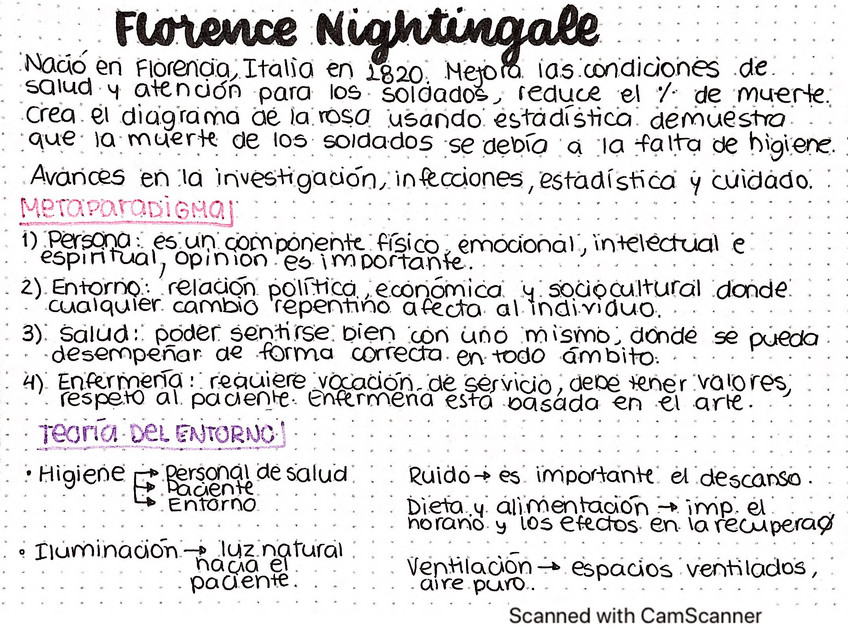 Florence Nightingale
Nació en Florencia, Italia en 1820. Mejora las condiciones de
salud y atención para los soldados, reduce el % de muerte.
Crea el diagrama de la rosa usando estadística demuestra
que la muerte de los soldados se debía a la falta de higiene.
Avances en la investigación, infecciones, estadística y cuidado.
Metaparadigma
1) Persona: es un componente físico, emocional, intelectual e
espiritual, opinión es importante.
2) Entorno: relación política, económica y sociocultural donde
cualquier cambio repentino afecta al individuo.
3) Salud: poder sentirse bien con uno mismo, donde se pueda
desempeñar de forma correcta en todo ámbito.
4) Enfermería: requiere vocación de servicio, debe tener valores,
respeto al paciente. Enfermería está basada en el arte.
Teoría DEL ENTORNO
• Higiene → Personal de salud
→ Paciente
→ Entorno
• Iluminación → luz natural
hacia el
paciente.
Ruido → es importante el descanso.
Dieta y alimentación → imp. el
horario y los efectos en la recuperaØ
Ventilación → espacios ventilados,
aire puro.
Scanned with CamScanner